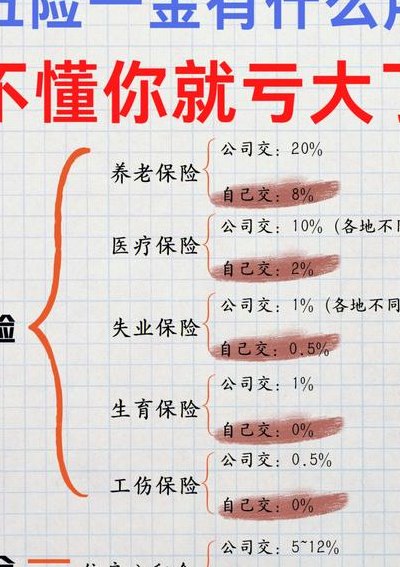 五险一金有什么用
不懂你就亏大了
公司交：20%
养老保险
自己交：8%
公司交：10%（各地不同
医疗保险
自己交：2%
公司交：1%（各地不同
险
失业保险
自己交：0.5%
公司交：1%
生育保险
自己交：0%
公司交：0.5%
工伤保险
自己交：0%
公司交：5~12%